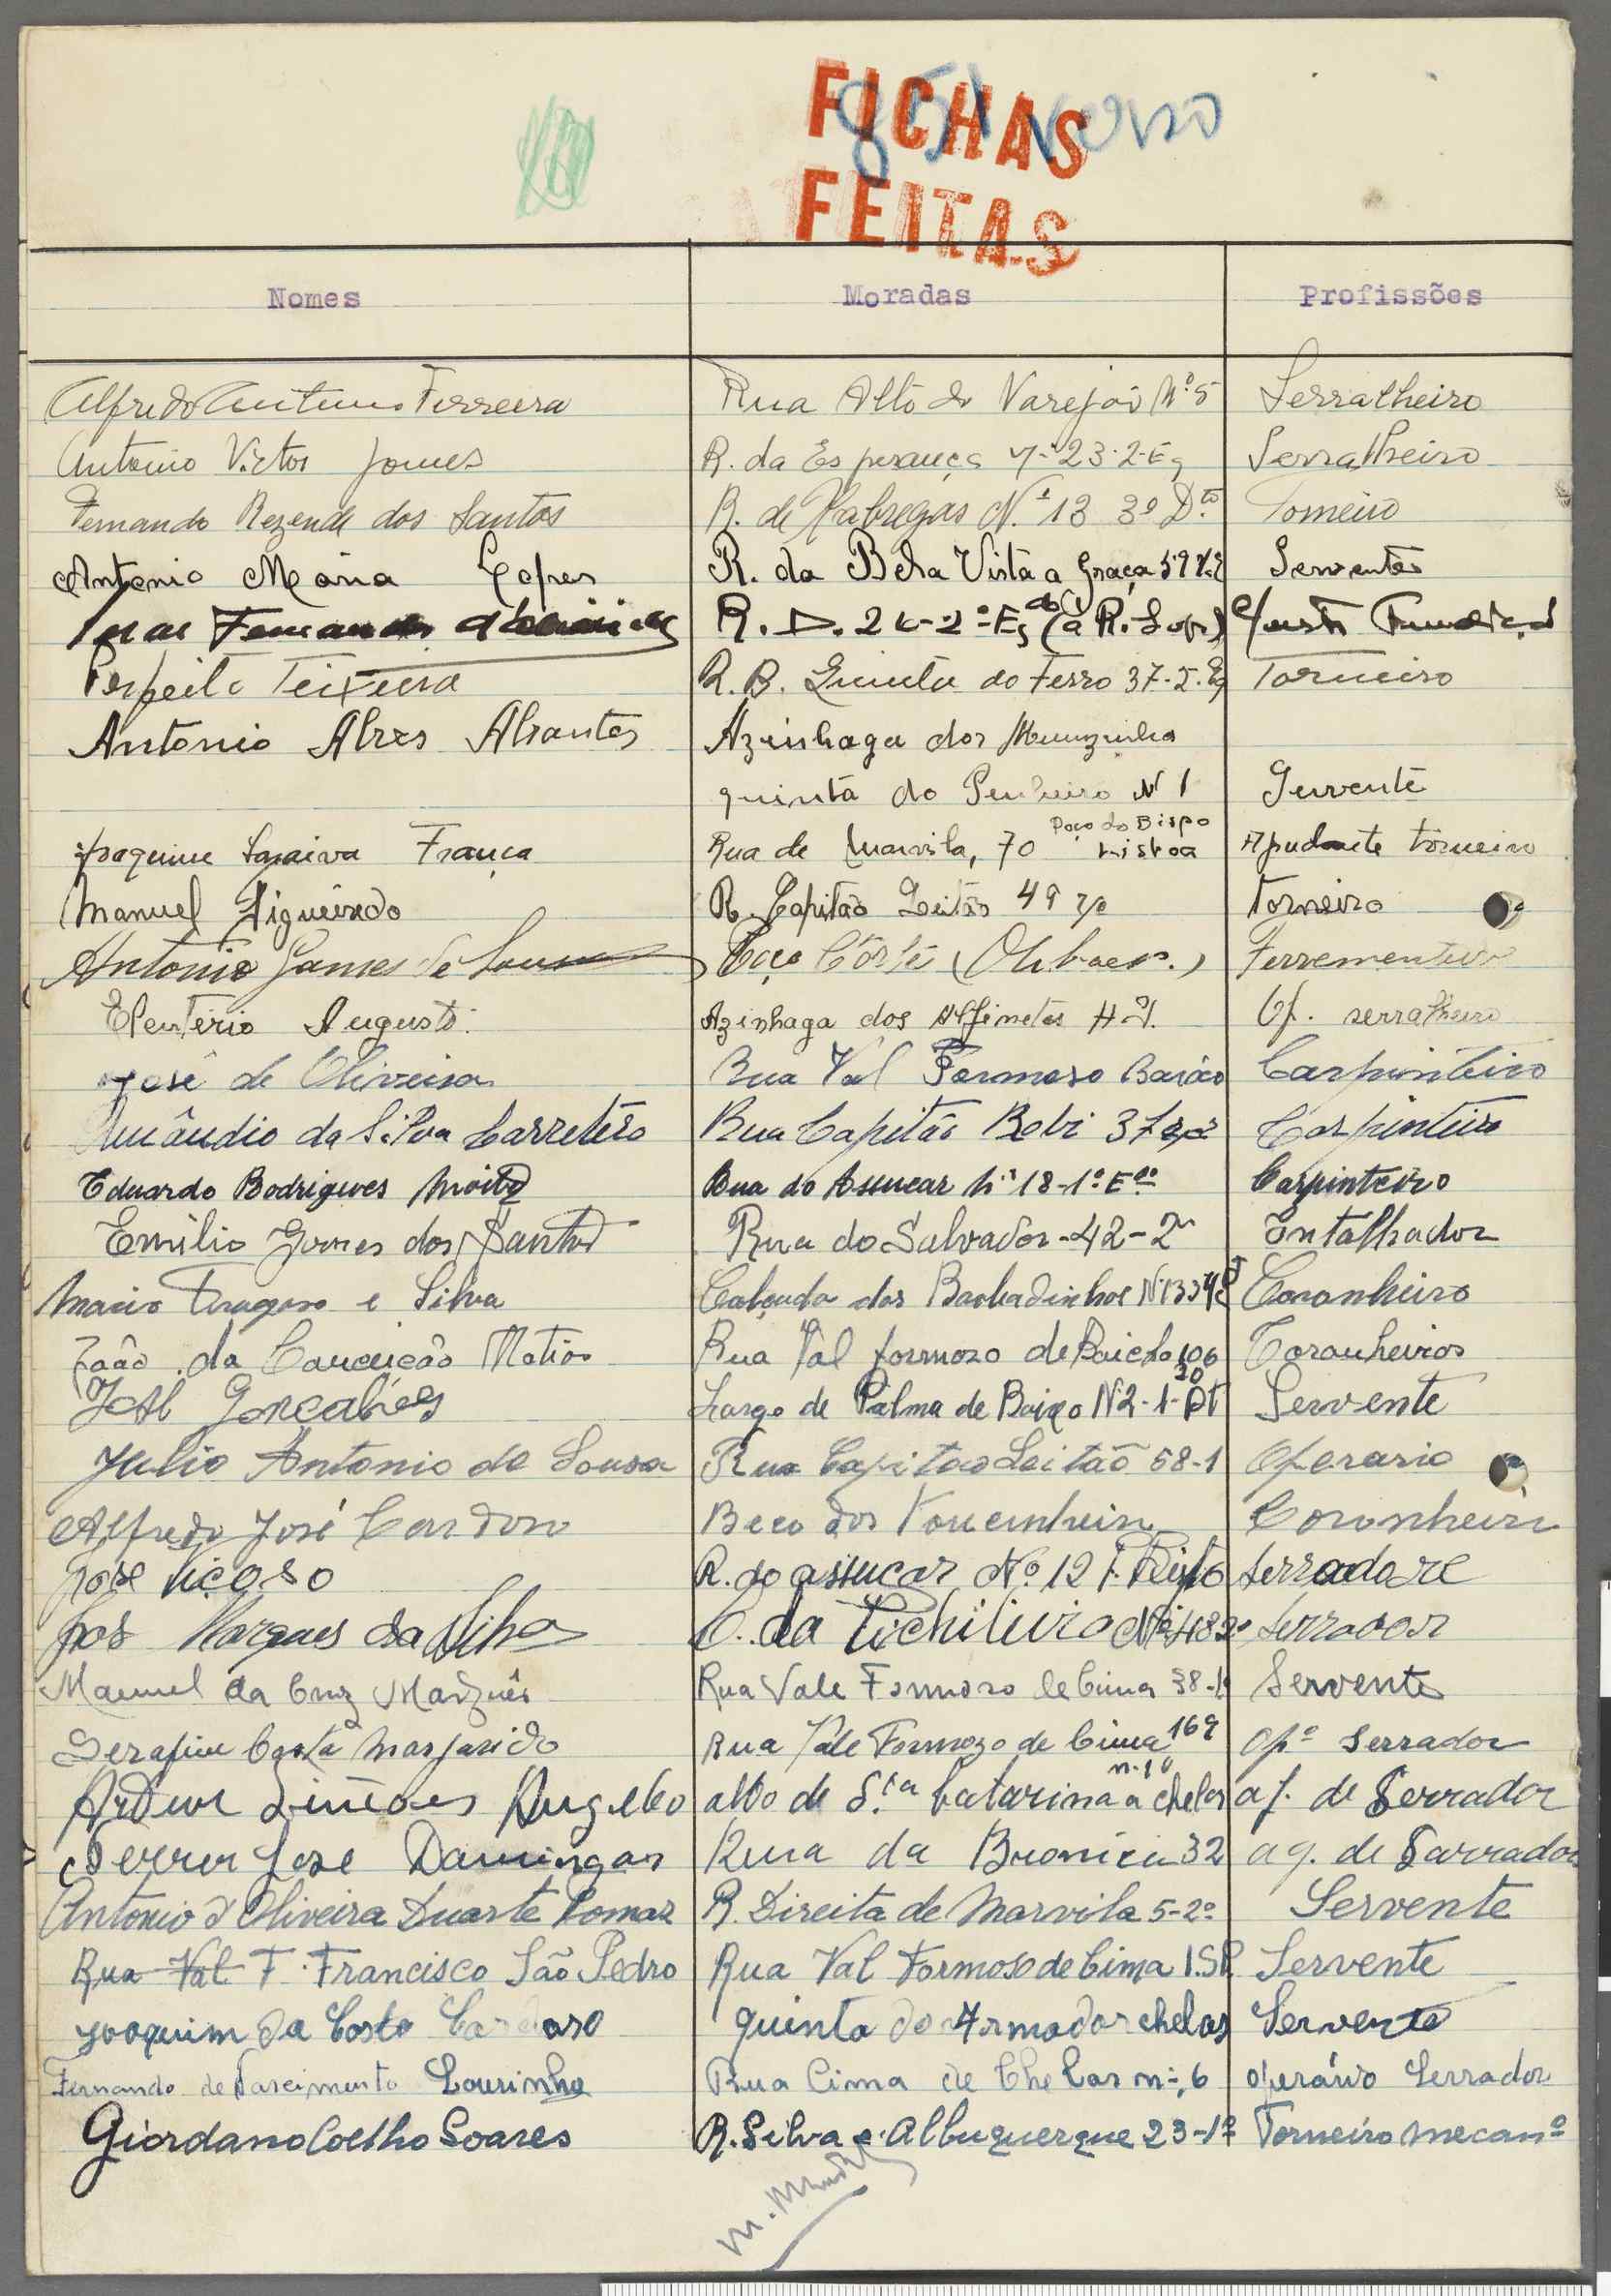 FICHAS
FEITAS
851 verso
Nomes Moradas Profissões
Alfredo Antunes Ferreira Rua Alto do Varejão Nº 5 Serralheiro
Antonio Victor Gomes R. da Esperança 23-2-Eq Serralheiro
Fernando Rezende dos Santos R. de Xabregas N.º 13 3º Dto Torneiro
Antonio Maria Lopes R. da Bela Vista a Graça Servente
Fernandes R. D.
Perfeito Teixeira R. B. Quinta do Ferro 37-2-Eq Torneiro
Antonio Alves Abrantes Azinhaga dos
quinta do Pinheiro N 1 Servente
Joaquim Saraiva França Rua de Marvila, 70 Poço do Bispo Lisboa Ajudante torneiro
Manuel Figueirêdo R. Capitão Leitão 49 Torneiro
Antonio Gomes de Sousa Poço Côrte (Olivaes.)
Eleuterio Augusto Azinhaga dos Alfinetes Of. serralheiro
José de Oliveira Rua Val Formoso Baixo Carpinteiro
Amândio da Silva Carretêro Rua Capitão 37 Carpinteiro
Eduardo Rodrigues Moita Rua do Assucar Nº 18-1º Edo Carpinteiro
Emilio Gomes dos Santos Rua do Salvador-42-2º Entalhador
Mario Fragoso e Silva Calçada dos Barbadinhos Coronheiro
João da Conceição Matias Rua Val formozo de Baicho 106 Coronheiros
José Gonçalves Largo de Palma de Baixo N 2-1-Dt Servente
Julio Antonio de Sousa Rua Capitao Leitão 58-1 Operario
Alfredo José Cardoso Beco dos Coronheiro
José Viçoso R. do assucar Nº 12 Serradore
José Marques da Silva C. da Picheleira Serrador
Manuel da Cruz Marquês Rua Vale Formozo de Cima 38-1º Servente
Serafim Costa Margarido Rua Vale Formozo de Cima 169 opº Serrador
Artur Simões Angelo alto de S.ta Catarina a chelas n.10 aj. de Serrador
José Domingos Rua da 32 aj. de Sarrador
Antonio d'Oliveira Duarte Tomaz R. Direita de Marvila 5-2º Servente
Rua Val F. Francisco São Pedro Rua Val Formoso de Cima I.SP. Servente
Joaquim da Costa Cardoso quinta do Armador chelas Servente
Fernando de Nascimento Lourinho Rua Cima de Chelas nº, 6 operário Serrador
Giordano Coelho Soares R. Silva e Albuquerque 23-1º Torneiro mecanº